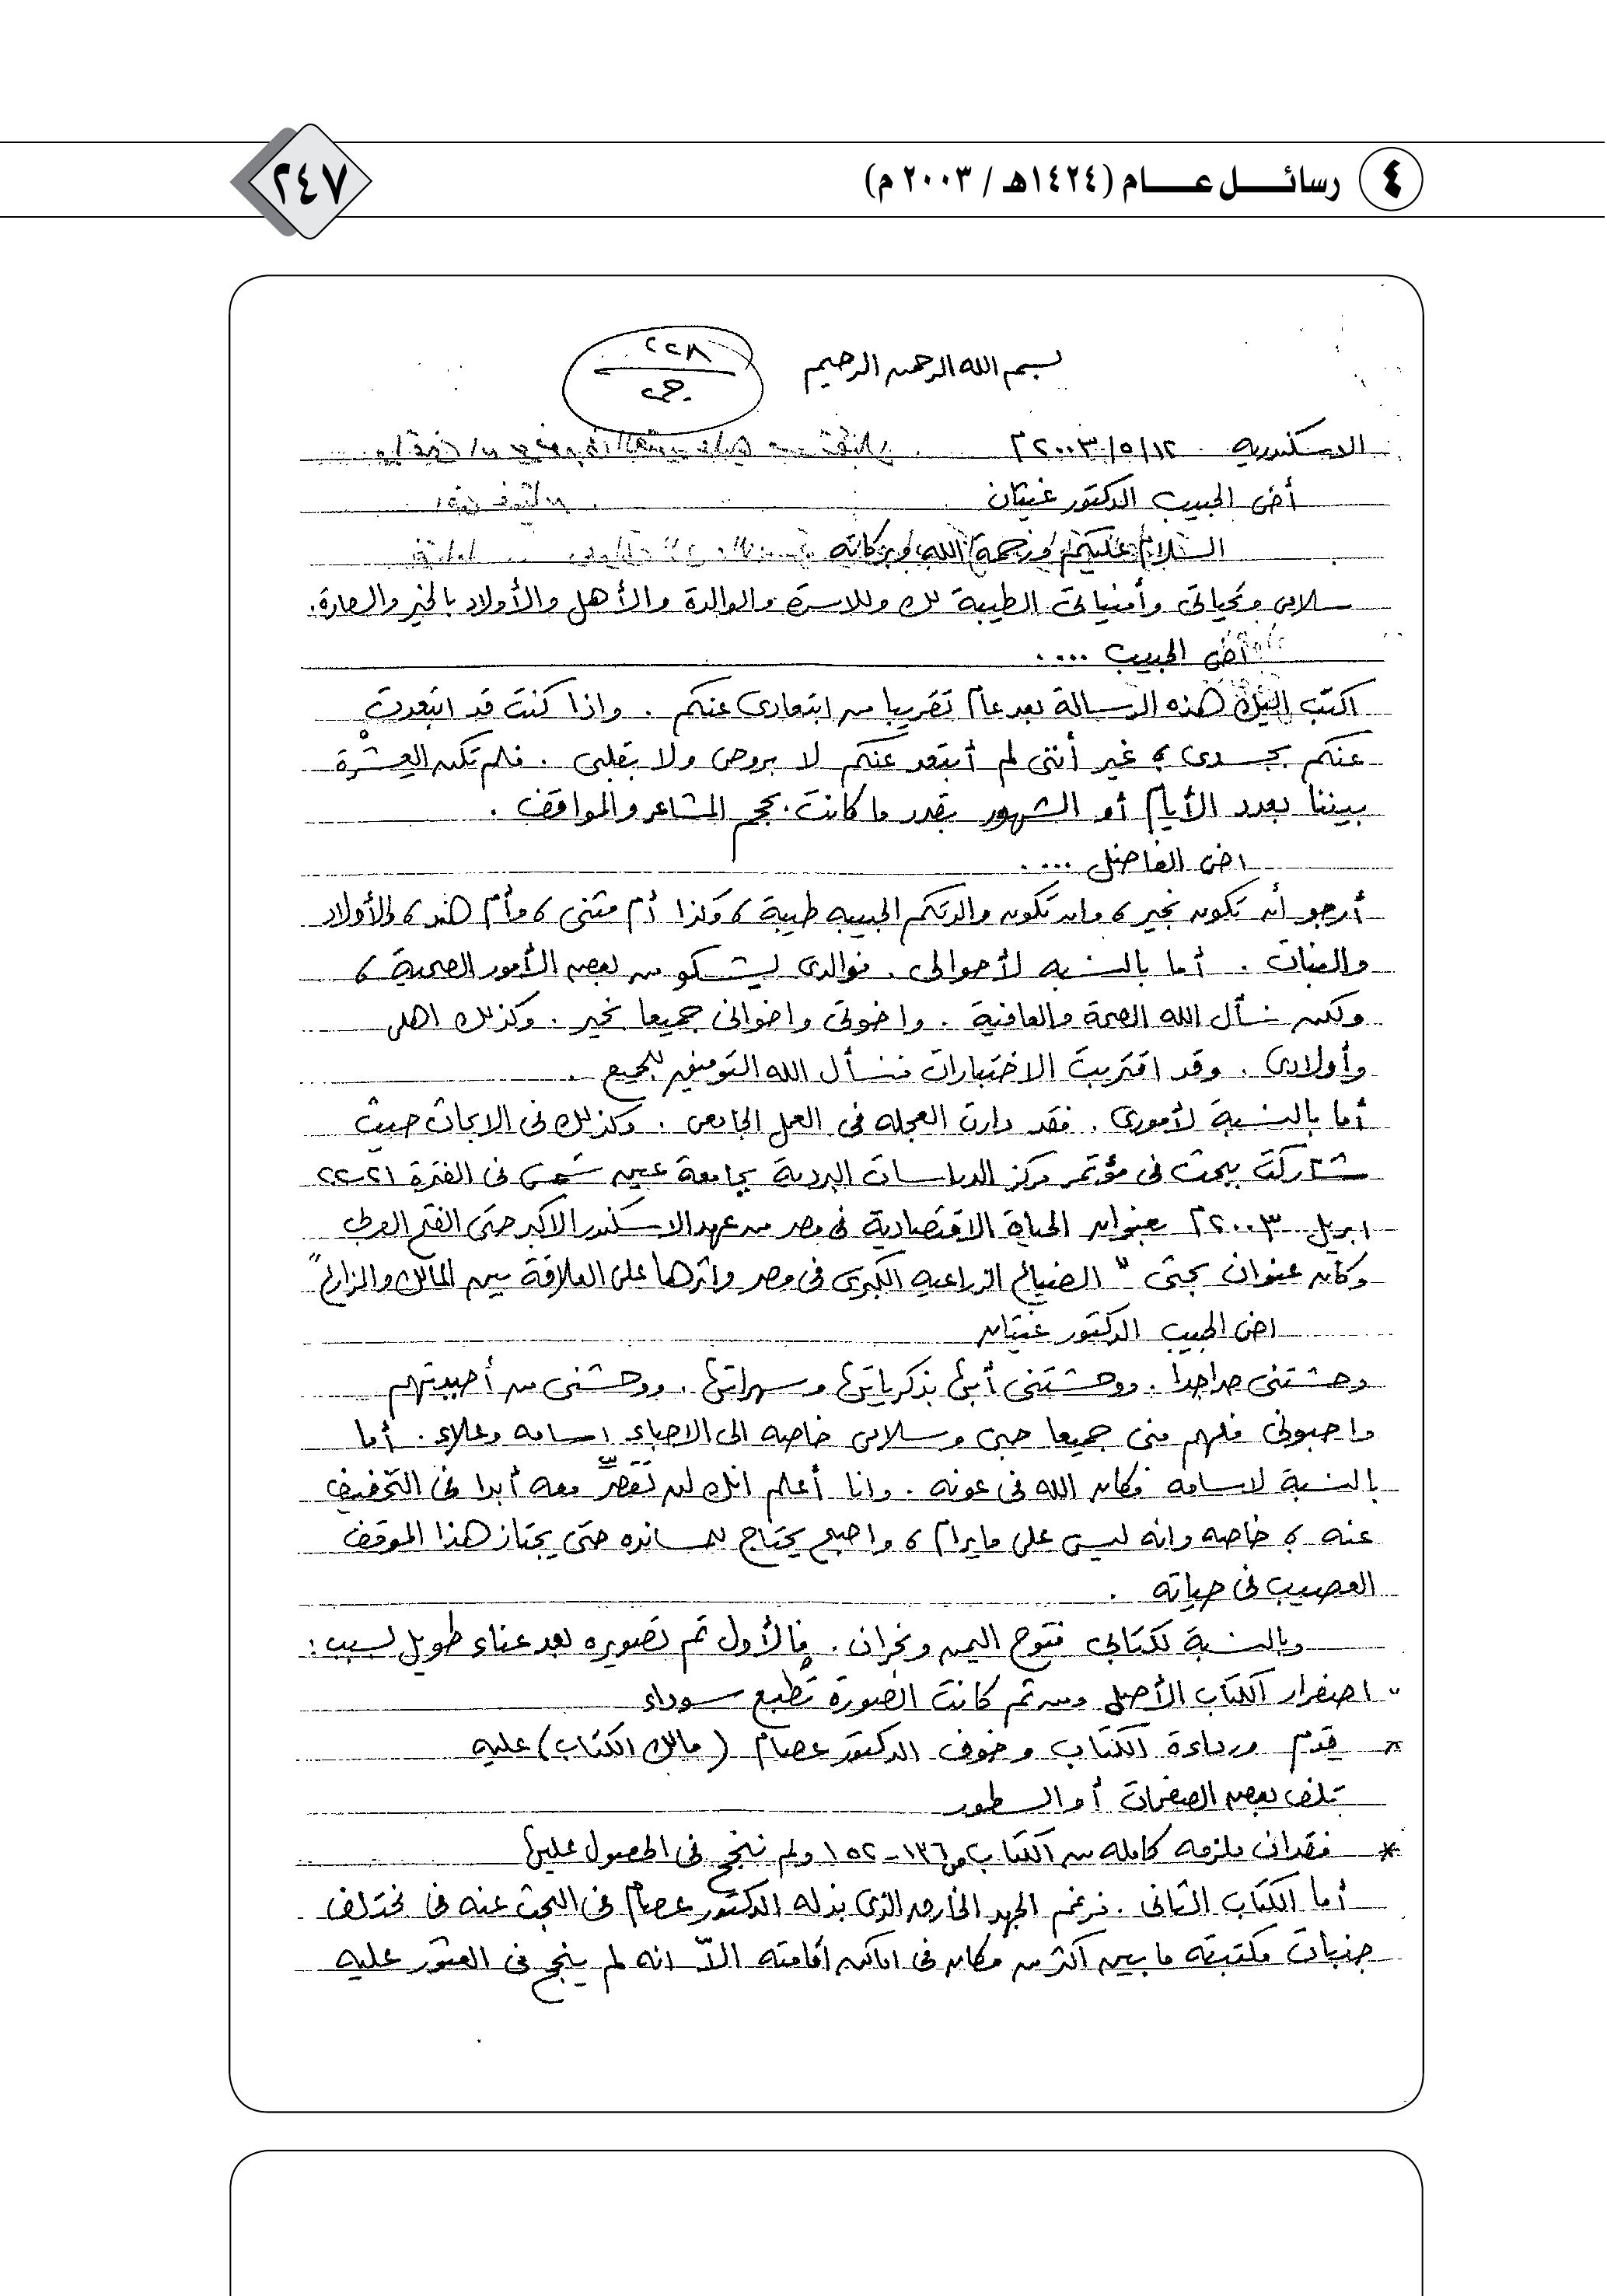 ٤ رسائل عام (١٤٢٤هـ / ٢٠٠٣ م)
٢٤٧
بسم الله الرحمن الرحيم
٢٢٨
الاسكندرية ١٢/٥/٢٠٠٣م
أخى الحبيب الدكتور غيثان
السلام عليكم ورحمة الله وبركاته
سلامى وتحياتى وأمنياتى الطيبة لك وللاسرة والوالدة والأهل والأولاد بالخير والسعادة.
أخى الحبيب ....
اكتب اليك هذه الرسالة بعد عام تقريبا من ابتعادى عنكم . واذا كنت قد ابتعدت
عنكم بجسدى ، غير أننى لم أبتعد عنكم لا بروحى ولا بقلبى . فلم تكن العِشْرة
بيننا بعدد الأيام أو الشهور بقدر ما كانت بحجم المشاعر والمواقف .
اخى الفاضل ....
أرجو أن تكون بخير ، وان تكون والدتكم الحبيبه طيبة ، وكذا أم مثنى ، وأم هند ، والأولاد
والبنات . أما بالنسبه لأحوالى . فوالدى يشكو من بعض الأمور الصحية ،
ولكن نسأل الله الصحة والعافية . واخوتى واخوانى جميعا بخير . وكذلك اهلى
وأولادى . وقد اقتربت الاختبارات فنسأل الله التوفيق للجميع .
أما بالنسبة لأمورى . فقد دارت العجله فى العمل الجامعى . وكذلك فى الابحاث حيث
شاركت ببحث فى مؤتمر مركز الدراسات البردية بجامعة عين شمس فى الفترة ٢١-٢٢
ابريل ٢٠٠٣م بعنوان الحياة الاقتصادية فى مصر من عهد الاسكندر الاكبر حتى الفتح العربى
وكان عنوان بحثى " الضياع الزراعيه الكبرى فى مصر واثرها على العلاقة بين المالك والمزارع "
اخى الحبيب الدكتور غيثان
وحشتنى جدا جدا . ووحشتنى أبها بذكرياتها وسهراتها . ووحشنى من أحببتهم
واحبونى فلهم منى جميعا حبى وسلامى خاصه الى الاحباء اسامه وعلاء . أما
بالنسبة لاسامه فكان الله فى عونه . وانا أعلم انك لن تقصِّر معه أبدا فى التخفيف
عنه ، خاصه وانه ليس على مايرام ، واصبح يحتاج للمسانده حتى يجتاز هذا الموقف
العصيب فى حياته .
وبالنسبة لكتابى فتوح اليمن ونجران . فالأول تم تصويره بعد عناء طويل لسبب :
" اصفرار الكتاب الأصلى ومن ثم كانت الصورة تُطبع سوداء
* قِدَم ورداءة الكتاب وخوف الدكتور عصام (مالك الكتاب) عليه
تلف بعض الصفحات أو السطور
* فقدان ملزمه كامله من الكتاب ص ١٣٦-١٥٢ ولم ننجح فى الحصول عليها
أما الكتاب الثانى . فرغم الجهد الخارق الذى بذله الدكتور عصام فى البحث عنه فى مختلف
جنبات مكتبته ما بين أكثر من مكان فى اماكن اقامته الاّ انه لم ينجح فى العثور عليه